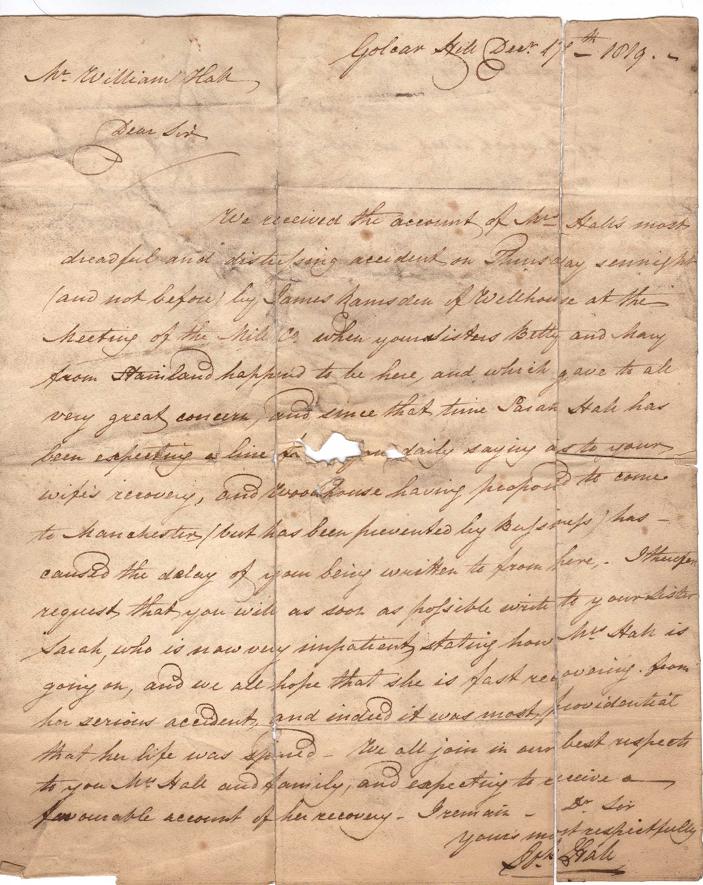 Golcar Hill Decr. 17th 1819. -
Mr. William Hall
Dear Sir
We received the account of Mrs Hall's most
dreadful and distressing accident on Thursday sennight
(and not before) by James Ramsden of Wellhouse at the
Meeting of the Mill Co. when your Sisters Betty and Mary
from Stainland happend to be here, and which gave to all
very great concern, and since that time Sarah Hall has
been expecting a line daily saying as to your
wife's recovery, and Woodhouse having propos'd to come
to Manchester, (but has been prevented by Bussness) has -
caused the delay of your being written to from here, - I therefore
request that you will as soon as possible write to your Sister
Sarah, who is now very impatient, stating how Mrs Hall is
going on, and we all hope that she is fast recovering from
her serious accident, and indeed it was most providential
that her life was spared - We all join in our best respects
to you Mrs Hall and family, and expecting to receive a
favourable account of her recovery - I remain - Dr Sir
yours most respectfully
Hall